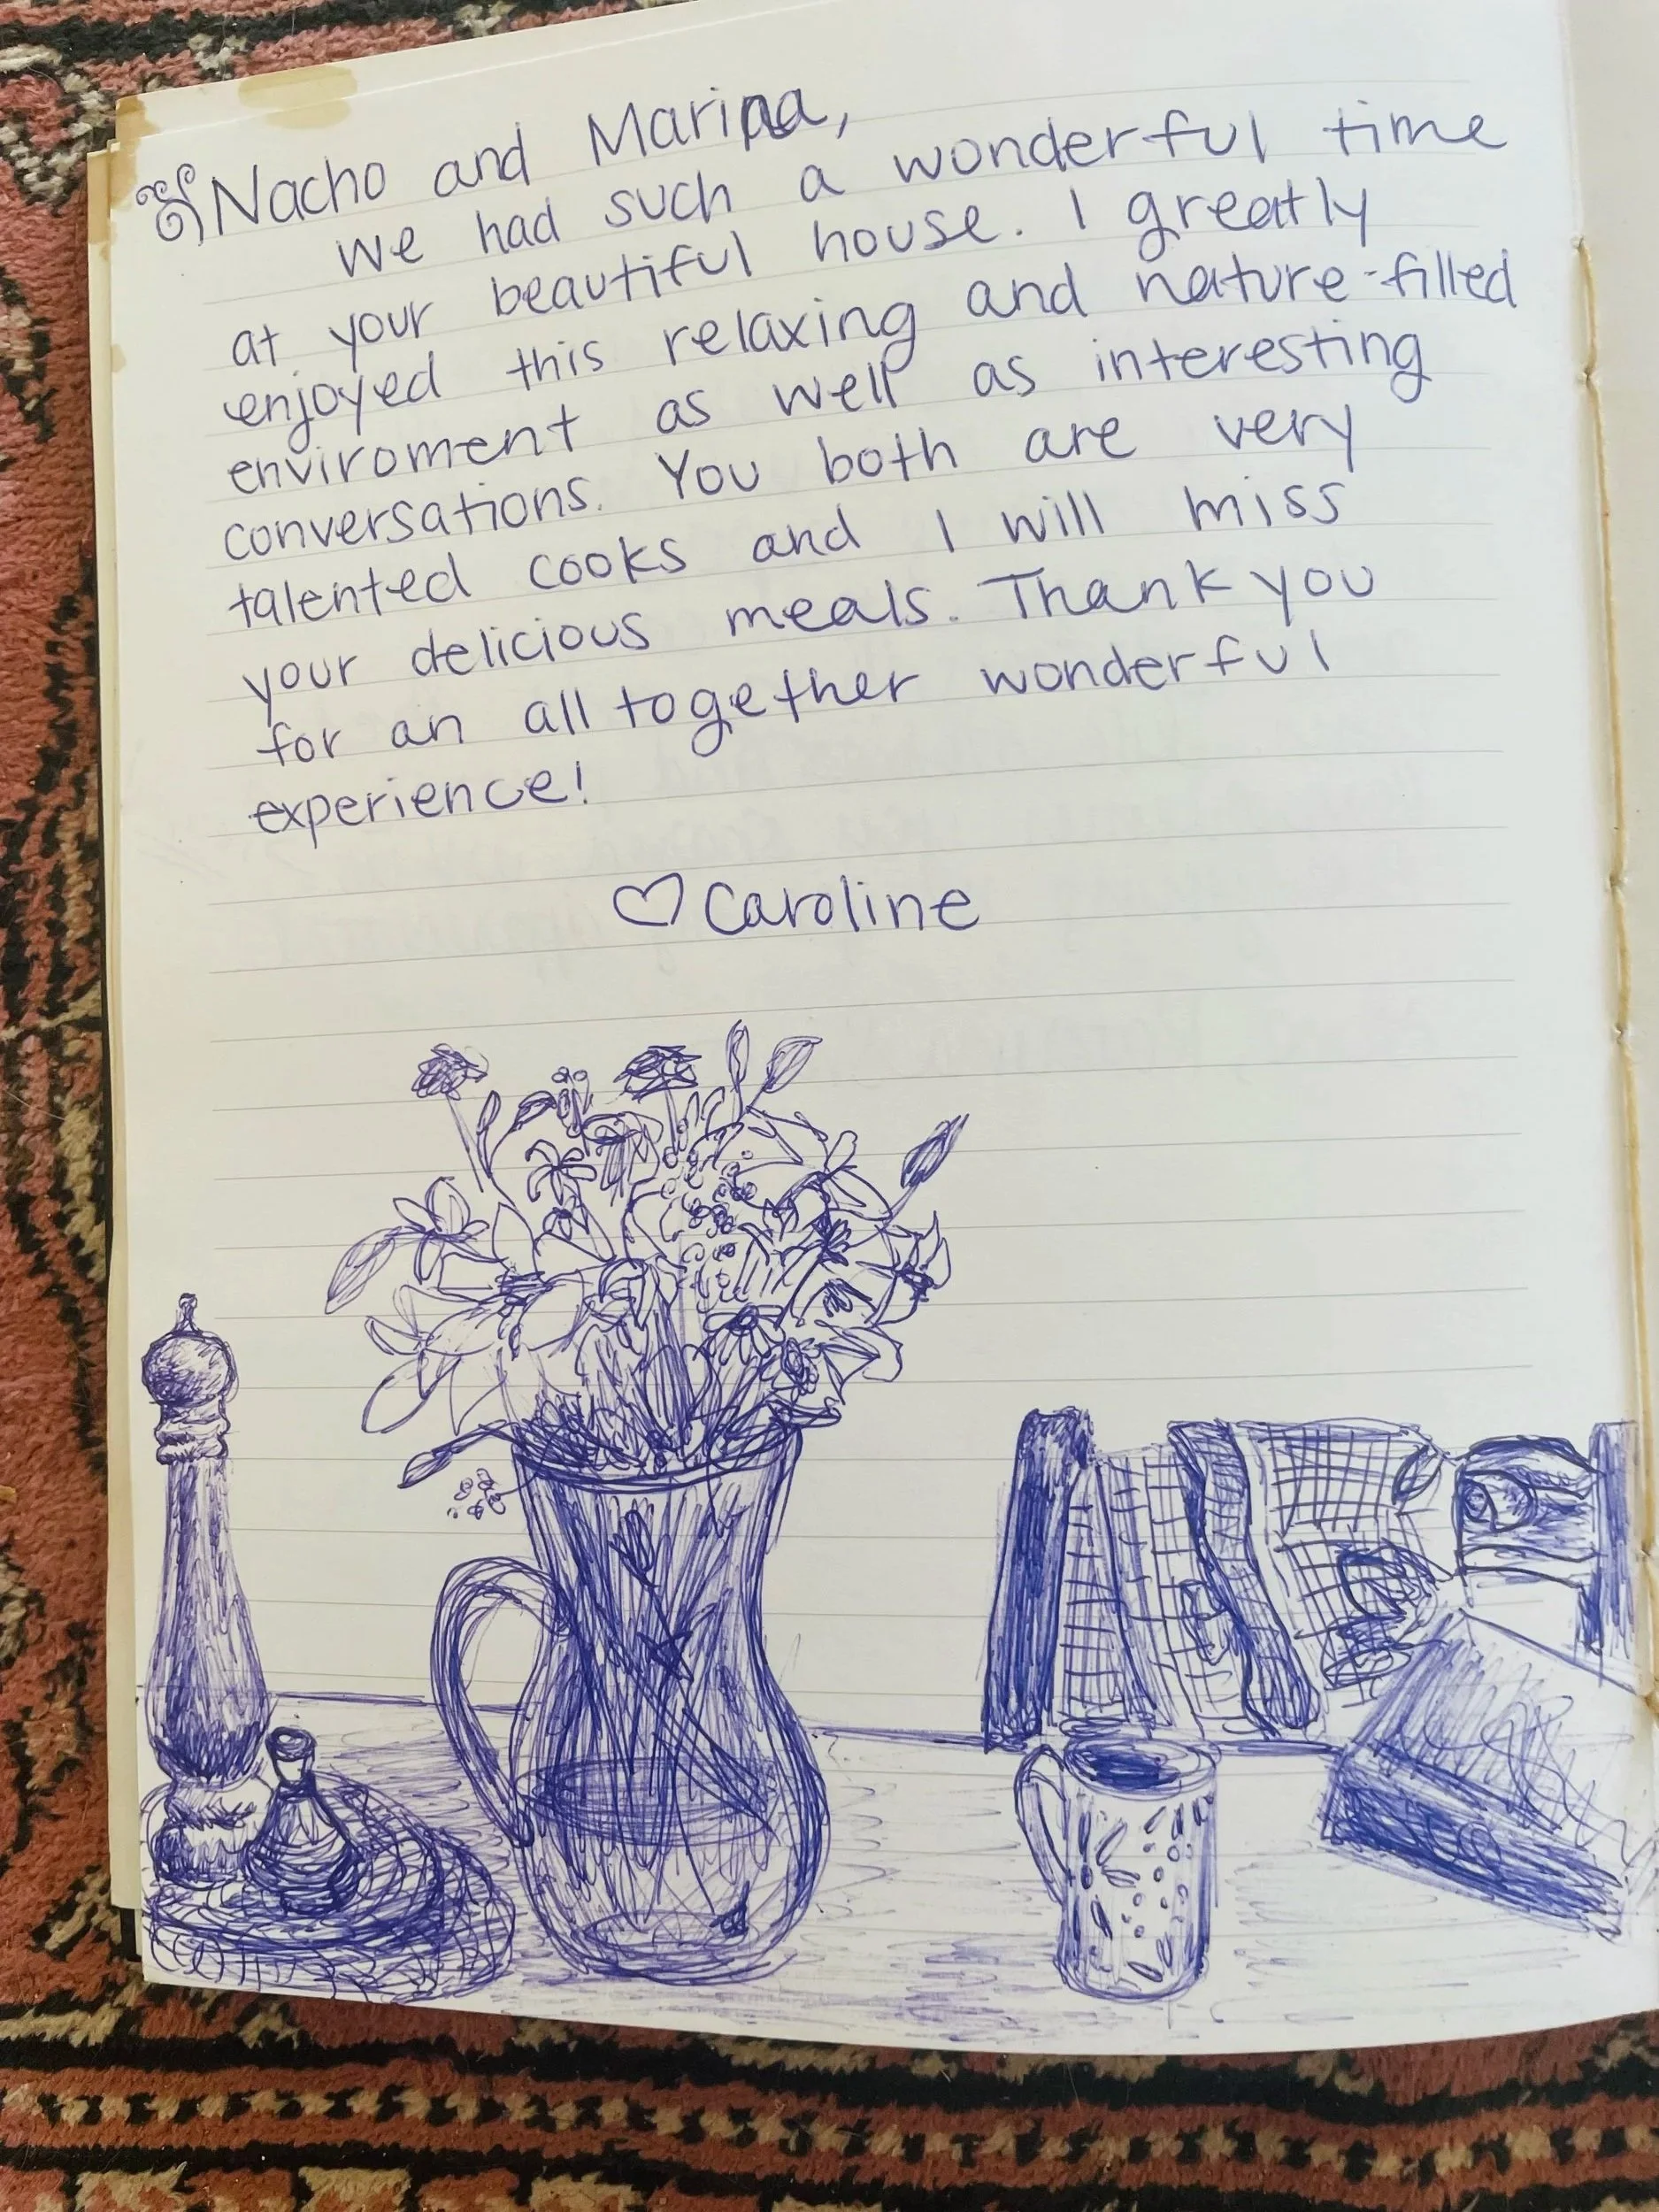 Nacho and Marina,
we had such a wonderful time
at your beautiful house. I greatly
enjoyed this relaxing and nature-filled
enviroment as well as interesting
conversations. You both are very
talented cooks and I will miss
your delicious meals. Thank you
for an all together wonderful
experience!
♡ Caroline